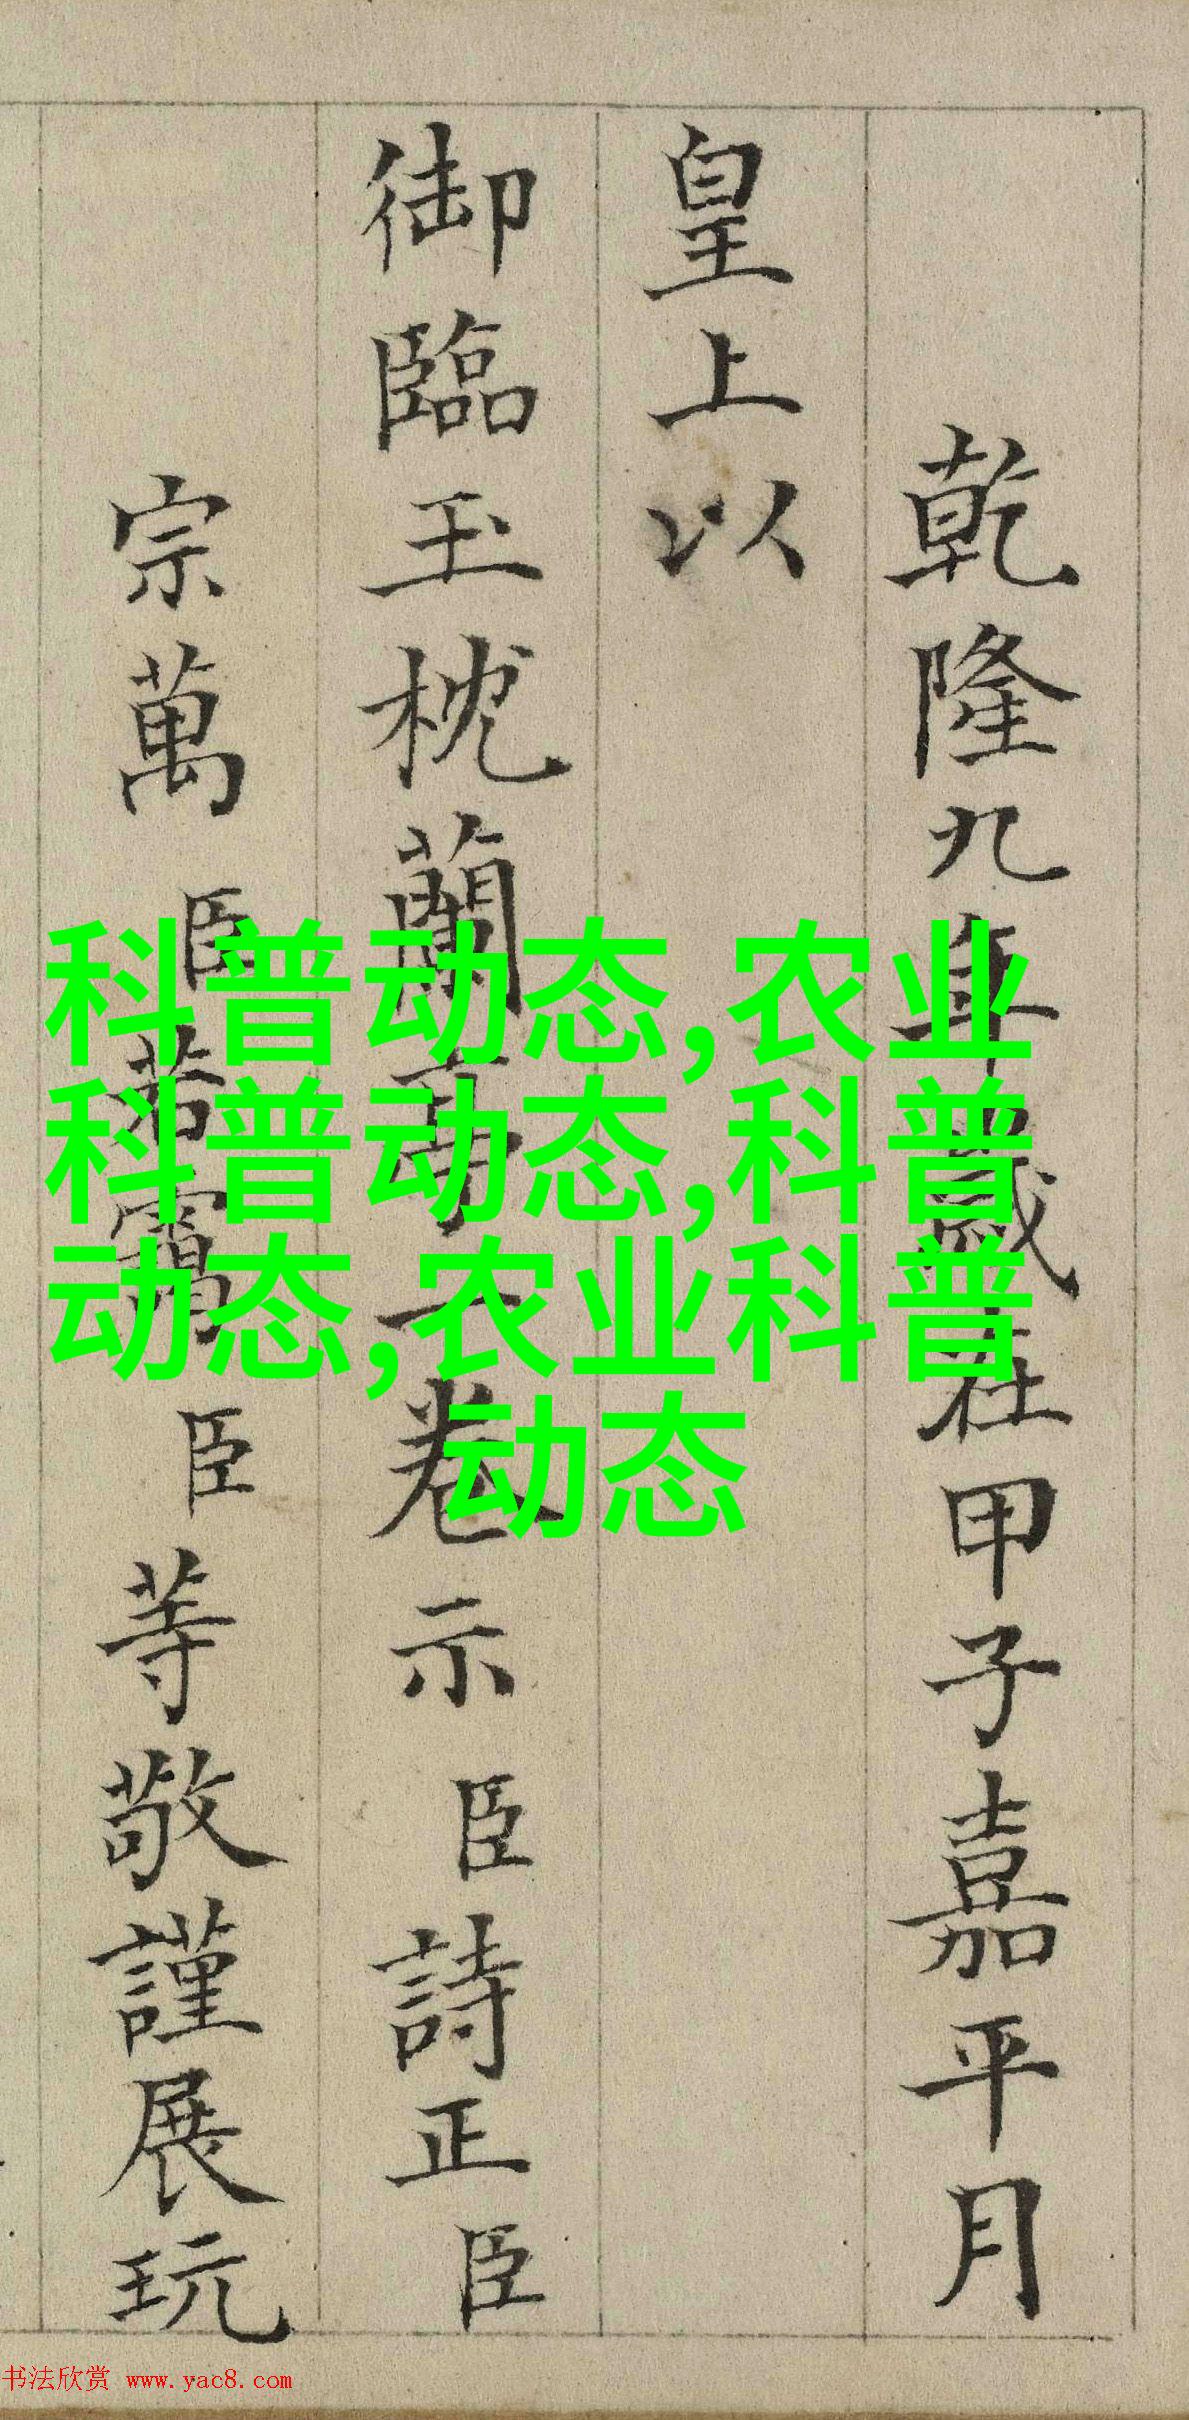 乾隆九年歲在甲子嘉平月
皇上以
御臨玉枕蘭亭一卷示臣詩正臣
宗萬臣若靄臣等敬謹展玩
科普动态,农业
科普动态,科普
动态,农业科普
动态
书法欣赏 www.yac8.com